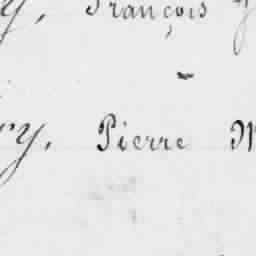 y, François
ry, Pierre M